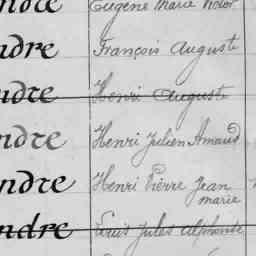 ndre Eugène Marie Victor
ndre François Auguste
ndre Henri Auguste
ndre Henri Julien Amand
ndre Henri Pierre Jean
marie
ndre Louis Jules Alphonse